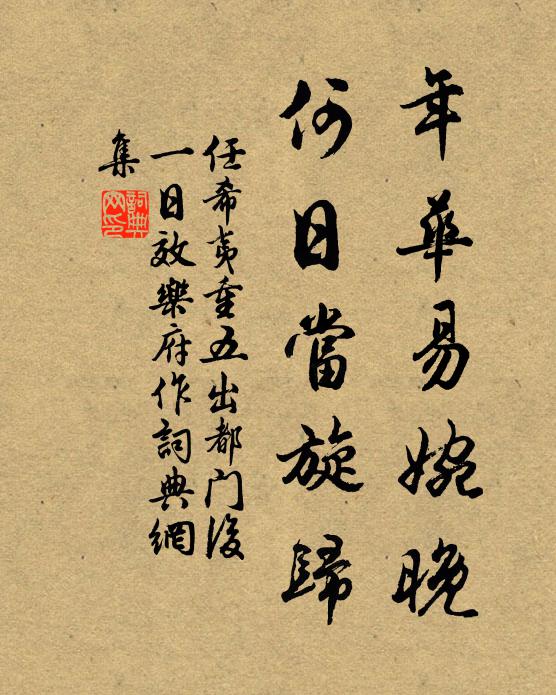 年華易婉晚
何日當旋歸
任希夷重五出都門後
一日效樂府作詞典網
集
詞典
网印